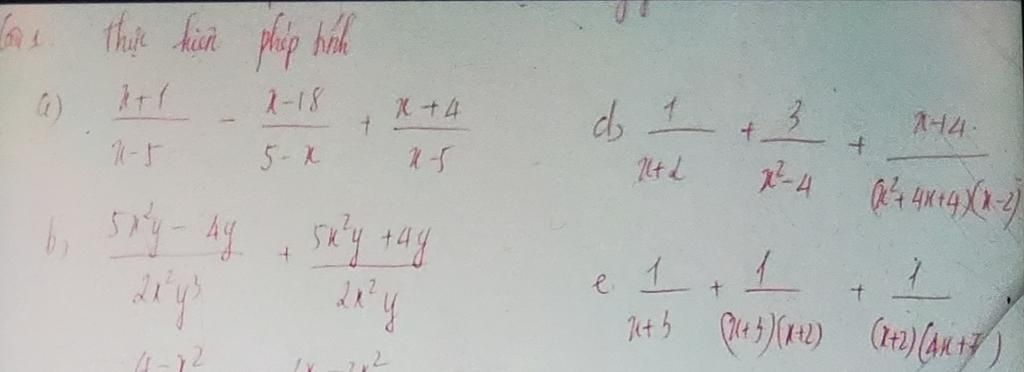 thực hiện phép tính
a) \frac{x+1}{x-5} - \frac{x-18}{5-x} + \frac{x+4}{x-5}
b, \frac{5x^2y - 4y}{2x^2y^3} + \frac{5x^2y + 4y}{2x^2y}
4 - x^2
d, \frac{1}{x+2} + \frac{3}{x^2-4} + \frac{x+14}{(x^2+4x+4)(x-2)}
e \frac{1}{x+3} + \frac{1}{(x+3)(x+2)} + \frac{1}{(x+2)(4x+7)}